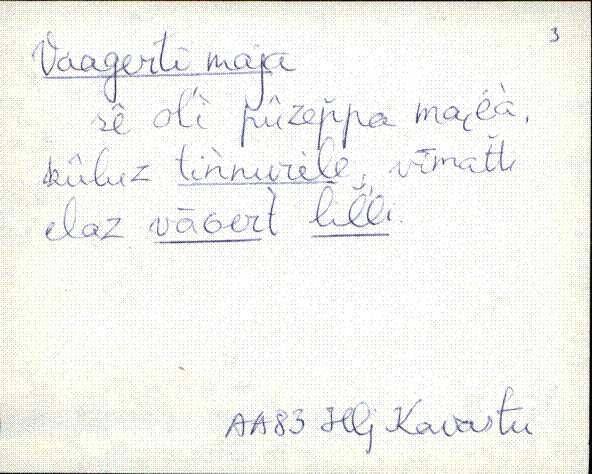 3
Vaagerti maja
sê oĺì pûzep̆pa majjà,
kûluz tiǹnurèle, vīmat̆t
elaz vāGert̀ lil̆li.
AA83 Hlj Kavastu